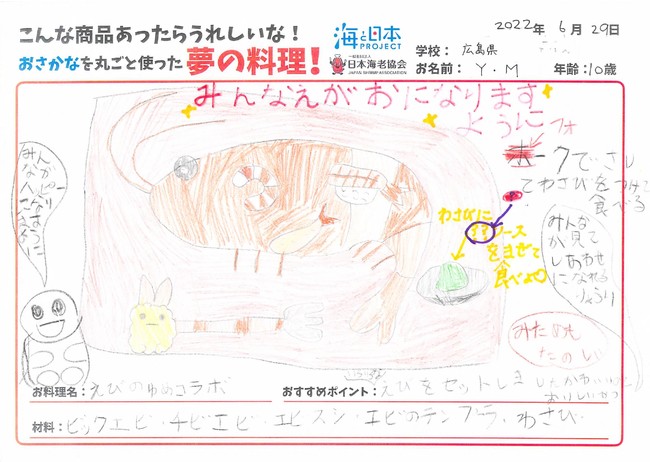 こんな商品あったらうれしいな！
おさかなを丸ごと使った夢の料理！
海と日本
PROJECT
一般社団法人
日本海老協会
JAPAN SHRIMP ASSOCIATION
2022年 6月 29日
学校：広島県
お名前：Y・M 年齢：10歳
みんなえがおになります
ように フォ
ークでさし
てわさびをつけて
食べる
みん
なが
ハッピー
になり
ように
わさびに
??ソース
をまぜて
食べよう
みんな
が見て
しあわせ
になれる
りょうり
みためも
たのしい
お料理名：えびのゆめコラボ
おすすめポイント：えびをセットしました
材料：ビックエビ・チビエビ・エビスシ・エビのテンプラ・わさび